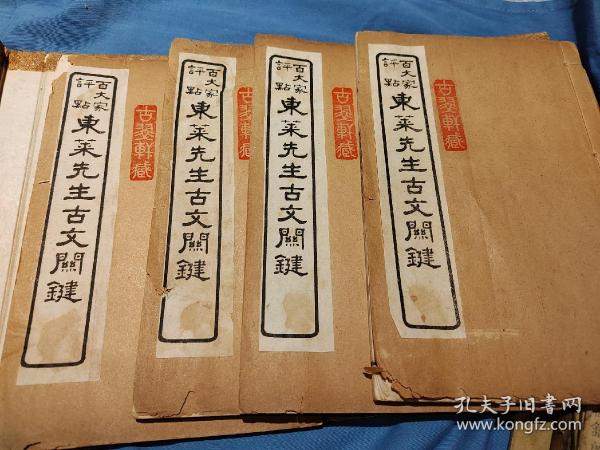 百大家
評點
東萊先生古文關鍵
古翠軒藏
百大家
評點
東萊先生古文關鍵
百大家
評點
東萊先生古文關鍵
古翠軒藏
百大家
評點
東萊先生古文關鍵
古翠軒藏
孔夫子旧書网
www.kongfz.com